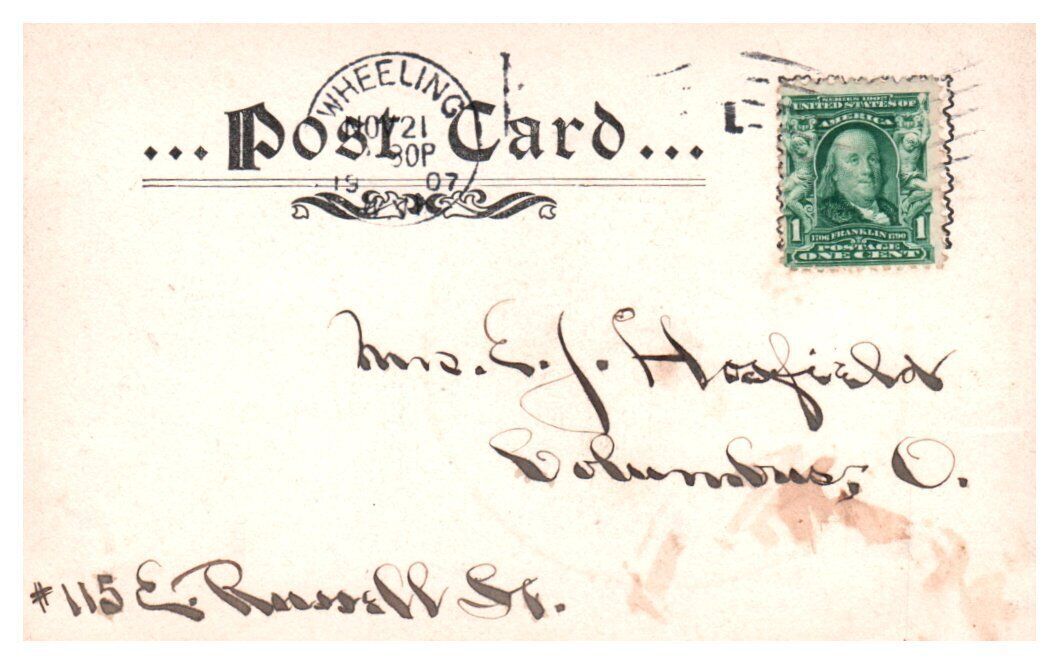 WHEELING
NOV 21
30P
19 07
... Post Card ...
SERIES 1902
UNITED STATES OF
AMERICA
1 1706 FRANKLIN 1790 1
POSTAGE
ONE CENT
Mrs. E. J. Hosfield
Columbus, O.
#115 E. Russell St.